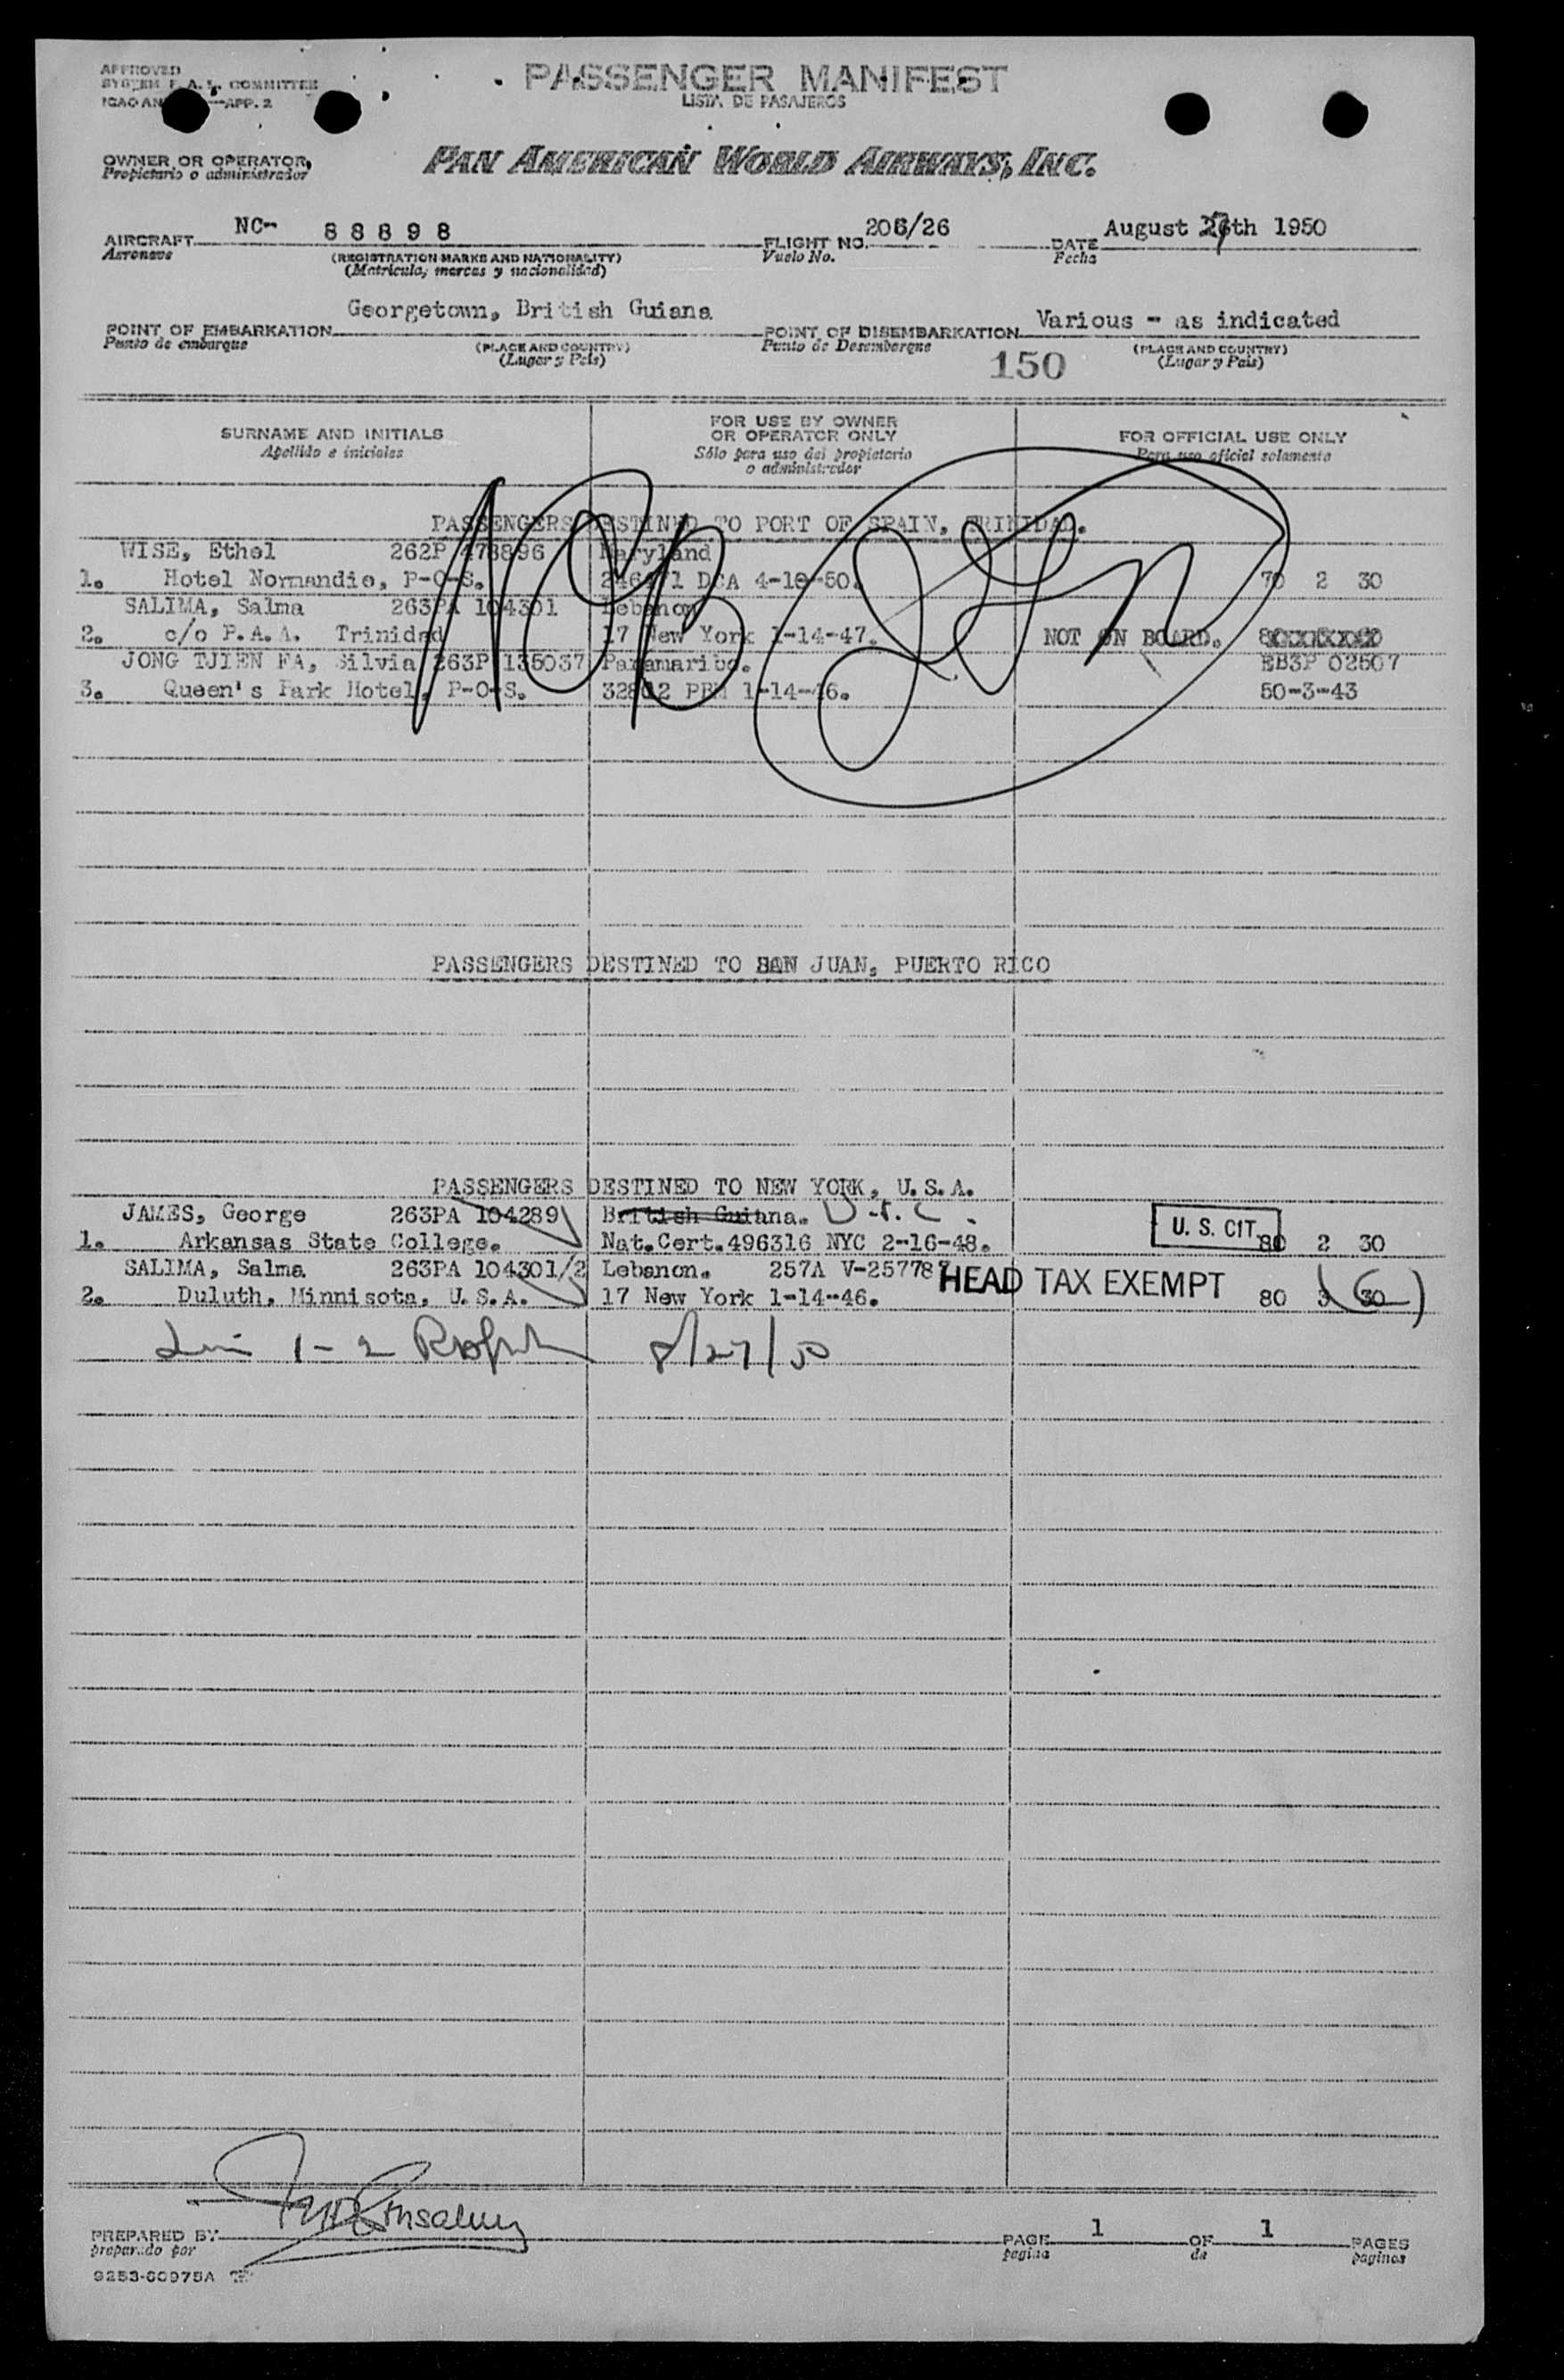 APPROVED
SYSTEM F.A.L. COMMITTEE
ICAO AN —APP. 2
PASSENGER MANIFEST
LISTA DE PASAJEROS
OWNER OR OPERATOR,
Propietario o administrador
PAN AMERICAN WORLD AIRWAYS, INC.
AIRCRAFT NC- 88898 FLIGHT NO. 206/26 DATE August th 1950
Aeronave (REGISTRATION MARKS AND NATIONALITY) Vuelo No. Fecha
(Matrícula, marcas y nacionalidad)
POINT OF EMBARKATION Georgetown, British Guiana POINT OF DISEMBARKATION Various - as indicated
Punto de embarque (PLACE AND COUNTRY) Punto de Desembarque (PLACE AND COUNTRY)
(Lugar y Pais) 150 (Lugar y Pais)
SURNAME AND INITIALS FOR USE BY OWNER OR OPERATOR ONLY FOR OFFICIAL USE ONLY
Apellido e iniciales Sólo para uso del propietario o administrador Para uso oficial solamente
PASSENGERS DESTINED TO PORT OF SPAIN, TRINIDAD.
WISE, Ethel 262P 478896 Maryland
1. Hotel Normandie, P-O-S. DCA 4-10-50. 70 2 30
SALIMA, Salma 263PA 104301 Lebanon
2. c/o P.A.A. Trinidad 17 New York 1-14-47. NOT ON BOARD.
JONG TJIEN FA, Silvia 263P 135037 Paramaribo. EB3P 02507
3. Queen's Park Hotel, P-O-S. PBM 1-14-46. 50-3-43
NOB
PASSENGERS DESTINED TO SAN JUAN, PUERTO RICO
PASSENGERS DESTINED TO NEW YORK, U.S.A.
JAMES, George 263PA 104289 British Guiana. U.S.C.
1. Arkansas State College. Nat.Cert.496316 NYC 2-16-48. U. S. CIT. 80 2 30
SALIMA, Salma 263PA 104301/2 Lebanon. 257A V-257787 HEAD TAX EXEMPT
2. Duluth, Minnisota, U.S.A. 17 New York 1-14-46. 80 3 30
1-2 8/27/50
PREPARED BY PAGE 1 OF 1 PAGES
preparado por pagina de paginas
9253-60975A